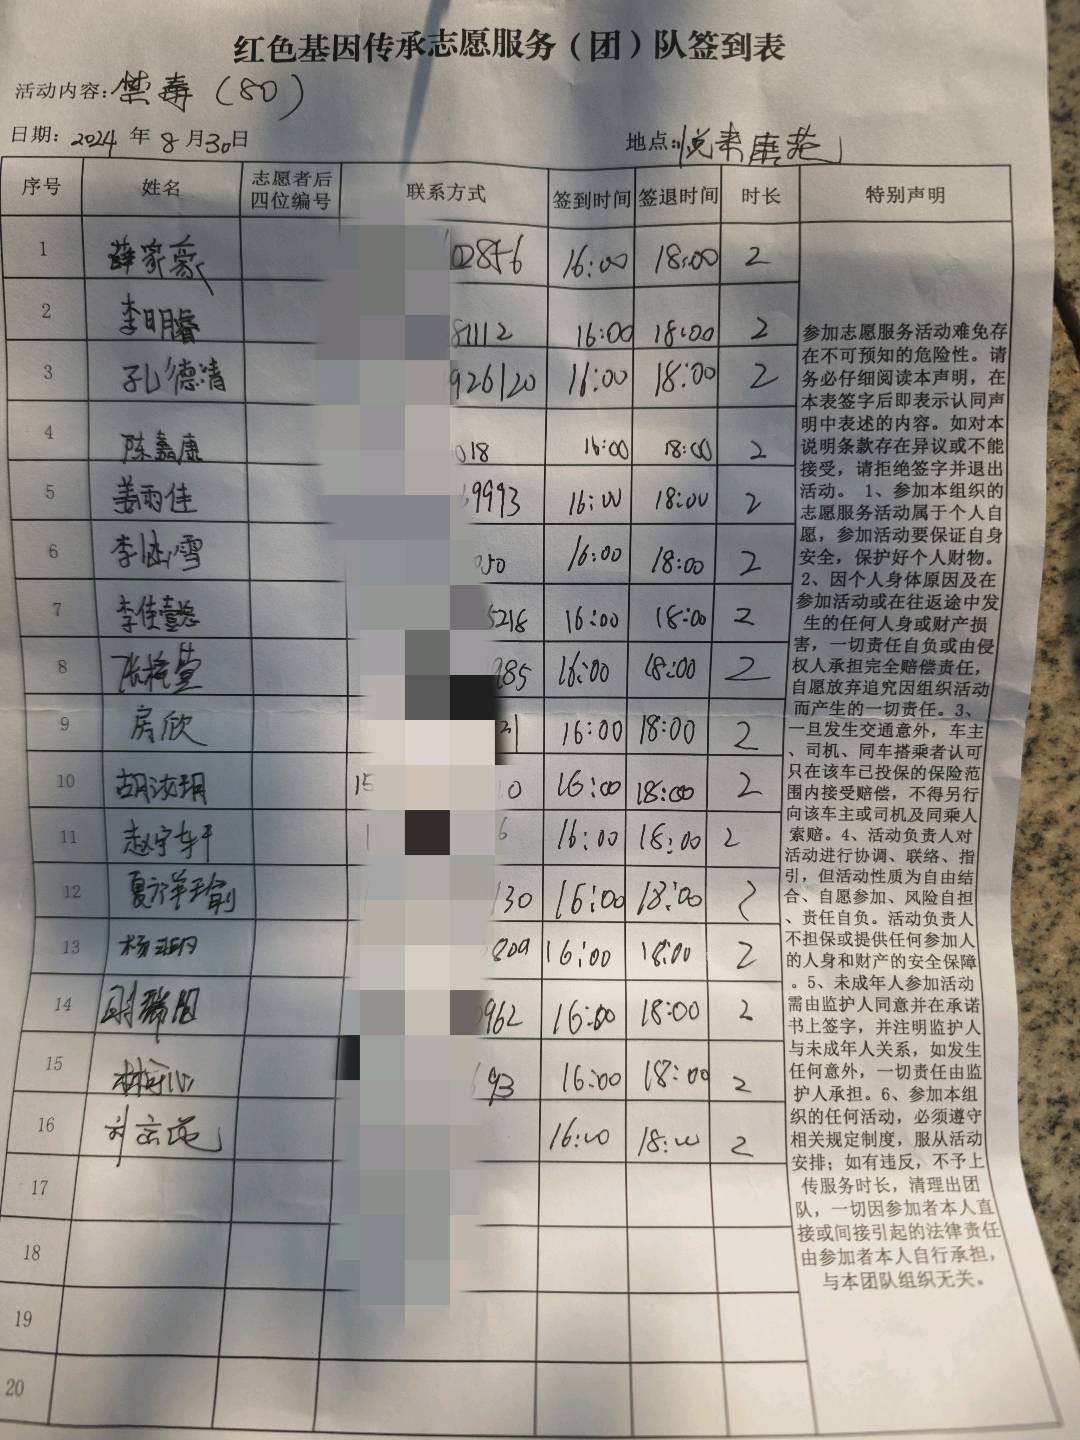 红色基因传承志愿服务（团）队签到表
活动内容：禁毒（80）
日期：2024年8月30日 地点：悦来康苑
序号 姓名 志愿者后四位编号 联系方式 签到时间 签退时间 时长 特别声明
1 薛家豪 02856 16:00 18:00 2
2 李明睿 81112 16:00 18:00 2
3 孔德清 926120 16:00 18:00 2
4 陈鑫康 018 16:00 18:00 2
5 姜雨佳 9993 16:00 18:00 2
6 李涵雪 050 16:00 18:00 2
7 李佳 5218 16:00 18:00 2
8 张 985 16:00 18:00 2
9 房欣 21 16:00 18:00 2
10 胡 15 0 16:00 18:00 2
11 赵宇轩 1 6 16:00 18:00 2
12 夏 130 16:00 18:00 2
13 杨 809 16:00 18:00 2
14 0962 16:00 18:00 2
15 林 693 16:00 18:00 2
16 16:00 18:00 2
17
18
19
20
参加志愿服务活动难免存
在不可预知的危险性。请
务必仔细阅读本声明，在
本表签字后即表示认同声
明中表述的内容。如对本
说明条款存在异议或不能
接受，请拒绝签字并退出
活动。 1、参加本组织的
志愿服务活动属于个人自
愿，参加活动要保证自身
安全，保护好个人财物。
2、因个人身体原因及在
参加活动或在往返途中发
生的任何人身或财产损
害，一切责任自负或由侵
权人承担完全赔偿责任，
自愿放弃追究因组织活动
而产生的一切责任。3、
一旦发生交通意外，车主
、司机、同车搭乘者认可
只在该车已投保的保险范
围内接受赔偿，不得另行
向该车主或司机及同乘人
索赔。4、活动负责人对
活动进行协调、联络、指
引，但活动性质为自由结
合、自愿参加、风险自担
、责任自负。活动负责人
不担保或提供任何参加人
的人身和财产的安全保障
。5、未成年人参加活动
需由监护人同意并在承诺
书上签字，并注明监护人
与未成年人关系，如发生
任何意外，一切责任由监
护人承担。6、参加本组
织的任何活动，必须遵守
相关规定制度，服从活动
安排；如有违反，不予上
传服务时长，清理出团
队，一切因参加者本人直
接或间接引起的法律责任
由参加者本人自行承担，
与本团队组织无关。